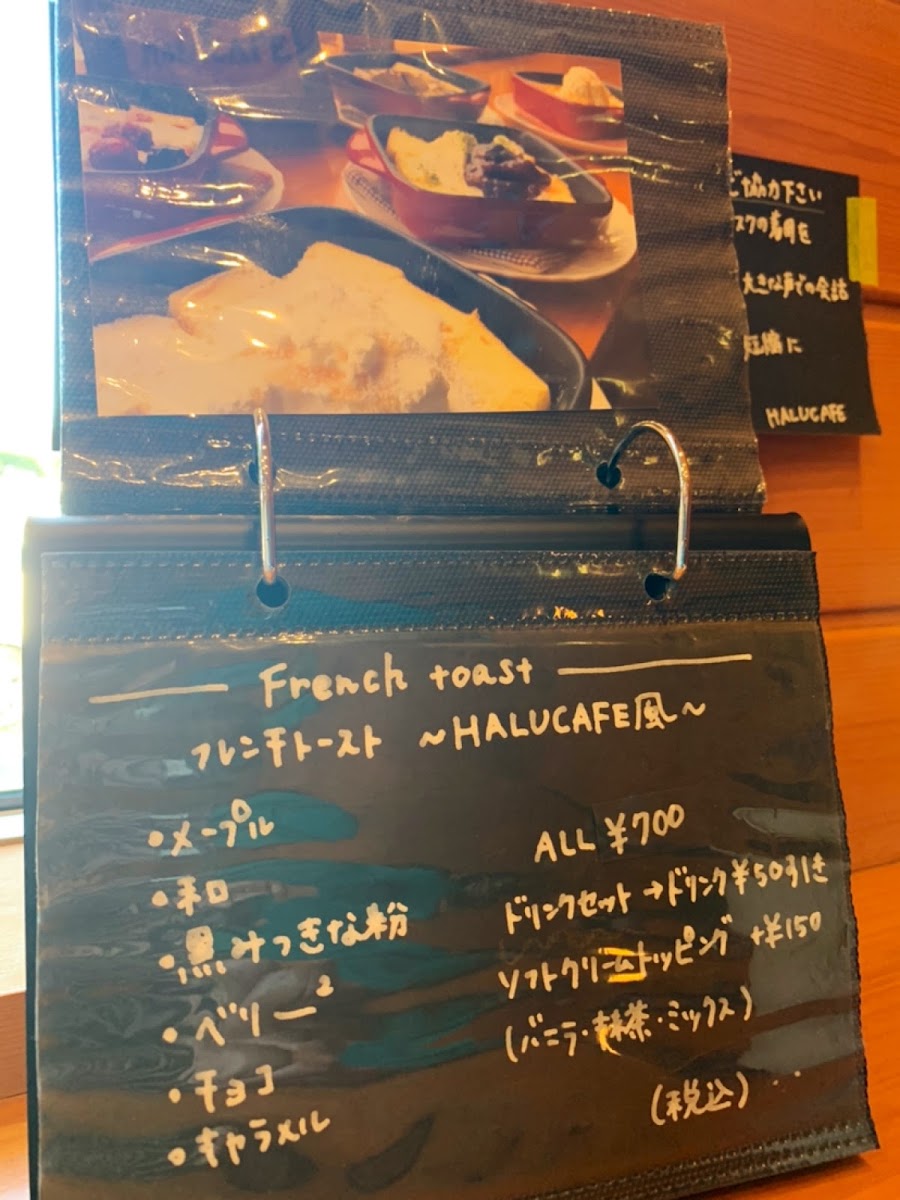 ご協力下さい
大きな声での会話
短縮に
HALUCAFE
French toast
フレンチトースト ~HALUCAFE風~
・メープル
・和
・黒みつきな粉
・ベリー²
・チョコ
・キャラメル
ALL ¥700
ドリンクセット→ドリンク¥50引き
ソフトクリームトッピング +¥150
(バニラ・抹茶・ミックス)
(税込)